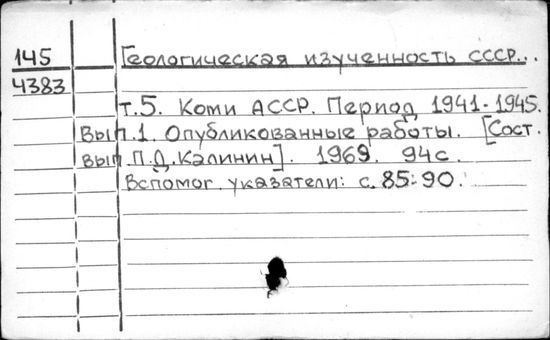 145 Геологическая изученность СССР...
4383
т.5. Коми АССР. Период 1941-1945.
Вып.1. Опубликованные работы. [Сост.
вып. П.Д.Калинин]. 1969. 94с.
Вспомог. указатели: с.85-90.